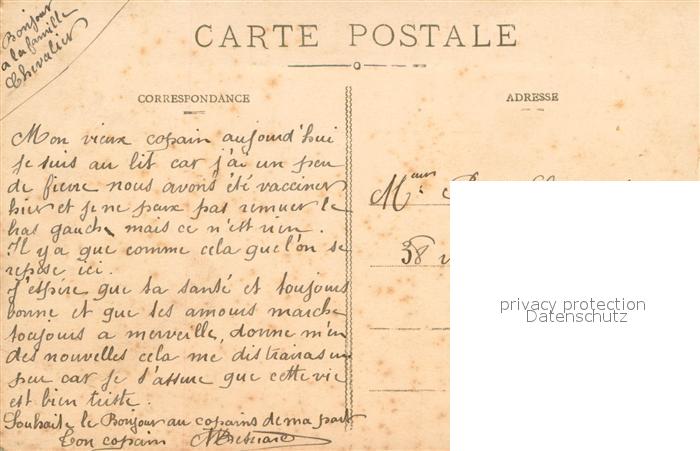 Bonjour
a la famille
Chevalier
CARTE POSTALE
CORRESPONDANCE
ADRESSE
Mon vieux copain aujourd'hui
je suis au lit car j'ai un peu
de fievre nous avons été vacciner
hier et je ne peux pas remuer le
bas gauche mais ce n'est rien.
Il y a que comme cela que l'on se
repose ici.
J'espère que ta santé et toujours
bonne et que tes amours marche
toujours a merveille, donne m'en
des nouvelles cela me distrairas un
peu car je t'assure que cette vie
est bien triste.
Souhaite le Bonjour au copains de ma part
Ton copain
Meur
38
privacy protection
Datenschutz